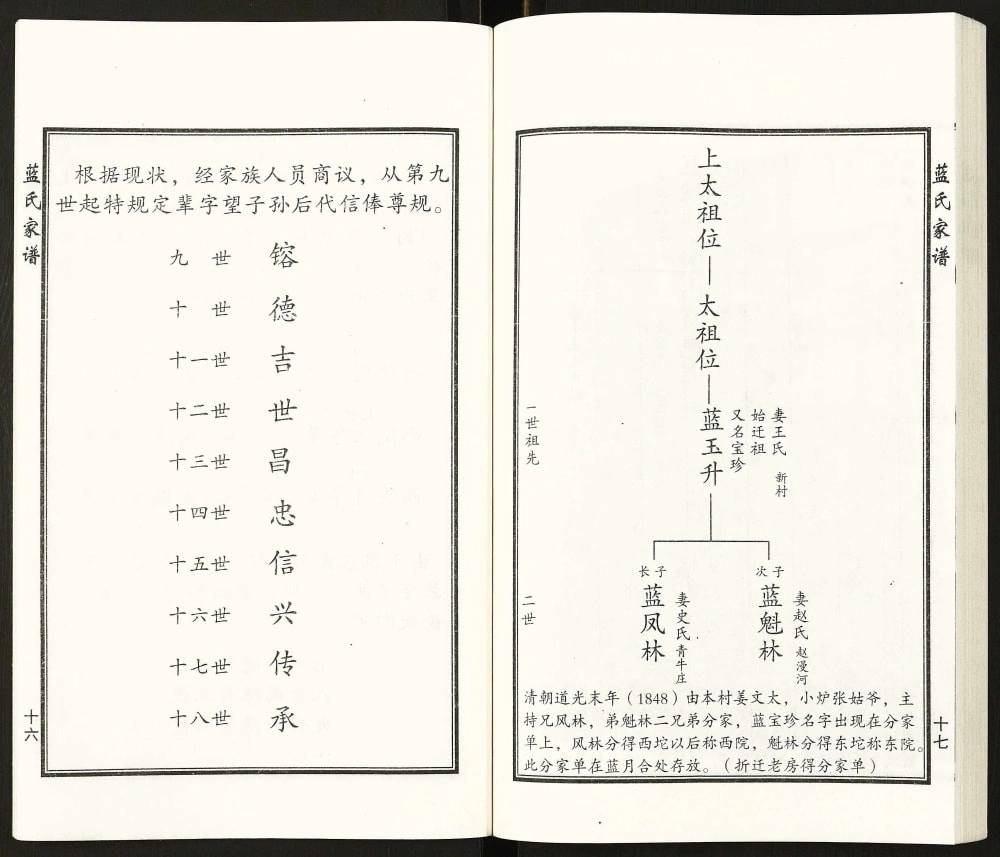 蓝氏家谱
根据现状，经家族人员商议，从第九
世起特规定辈字望子孙后代信俸尊规。
九世 镕
十世 德
十一世 吉
十二世 世
十三世 昌
十四世 忠
十五世 信
十六世 兴
十七世 传
十八世 承
十六
蓝氏家谱
上太祖位
太祖位
一世祖先
蓝玉升
又名宝珍
始迁祖
妻王氏 新村
二世
长子
蓝凤林
妻史氏 青牛庄
次子
蓝魁林
妻赵氏 赵漫河
清朝道光末年（1848）由本村姜文太，小炉张姑爷，主
持兄风林，弟魁林二兄弟分家，蓝宝珍名字出现在分家
单上，风林分得西坨以后称西院，魁林分得东坨称东院。
此分家单在蓝月合处存放。（折迁老房得分家单）
十七